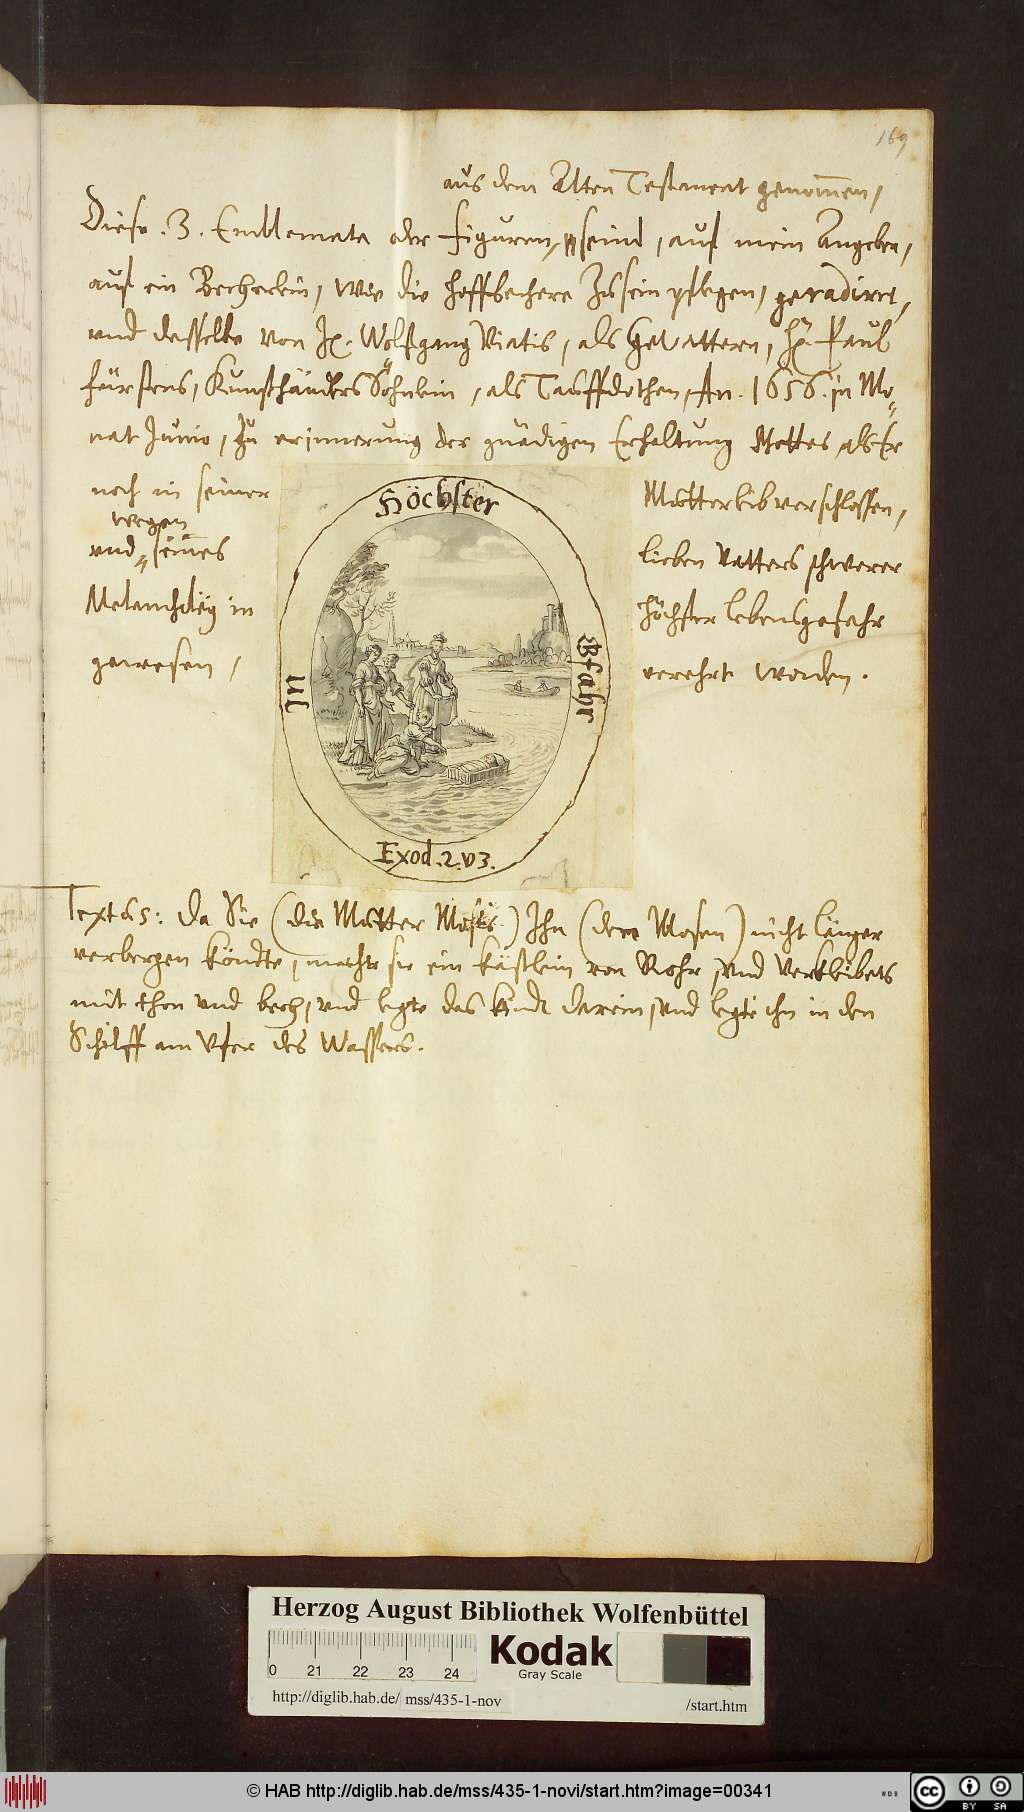 169
aus dem Alten Testament genom̅en,
Diese .3. Emblemata oder Figuren, seind, auf mein Angeben,
auf ein Becherlein, wie die Hoffbechere zu sein pflegen, geradirt,
und dasselbe von H. Wolfgang Viatis, als Gevattern, H. Paul
Fürstens, Kunsthändlers Söhnlein, als Tauffdothen, An. 1656. in Mo„
nat Junio, zu erinnerung der gnädigen Erhaltung Gottes, als Er
noch in seiner Mutterlib verschlossen,
wegen
und seines lieben Vatters schwerer
Melancholey in höchster lebensgefahr
gewesen, verehrt worden.
In Höchster Gfahr
Exod. 2. v 3.
Textus: Da Sie (die Mutter Mosis) Ihn (den Mosen) nicht länger
verbergen köndte, machte sie ein kästlein von Rohr, und verklibets
mit thon und bech, und legte das Kind darein, und legte ihn in den
Schilff am Ufer des Wassers.
Herzog August Bibliothek Wolfenbüttel
0 21 22 23 24
Kodak
Gray Scale
http://diglib.hab.de/ mss/435-1-nov /start.htm
© HAB http://diglib.hab.de/mss/435-1-novi/start.htm?image=00341
WDB
cc BY SA